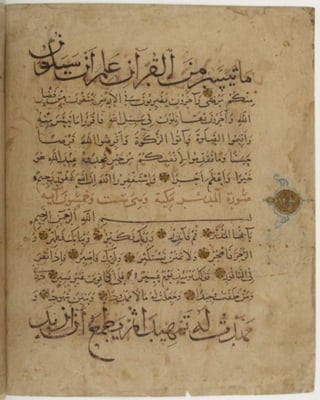 ما تيسر من القرآن علم أن سيكون
منكم مرضى وآخرون يضربون في الأرض يبتغون من فضل
الله وآخرون يقاتلون في سبيل الله فاقرؤا ما تيسر منه
وأقيموا الصلوة وآتوا الزكوة وأقرضوا الله قرضا
حسنا وما تقدموا لأنفسكم من خير تجدوه عند الله هو
خيرا وأعظم أجرا واستغفروا الله إن الله غفور رحيم
سورة المدثر مكية وهي ست وخمسون آية
بسم الله الرحمن الرحيم
يا أيها المدثر قم فأنذر وربك فكبر وثيابك فطهر و
الرجز فاهجر ولا تمنن تستكثر ولربك فاصبر فإذا نقر
في الناقور فذلك يومئذ يوم عسير على الكافرين غير يسير ذرني
ومن خلقت وحيدا وجعلت له مالا ممدودا وبنين شهودا و
مهدت له تمهيدا ثم يطمع أن أزيد